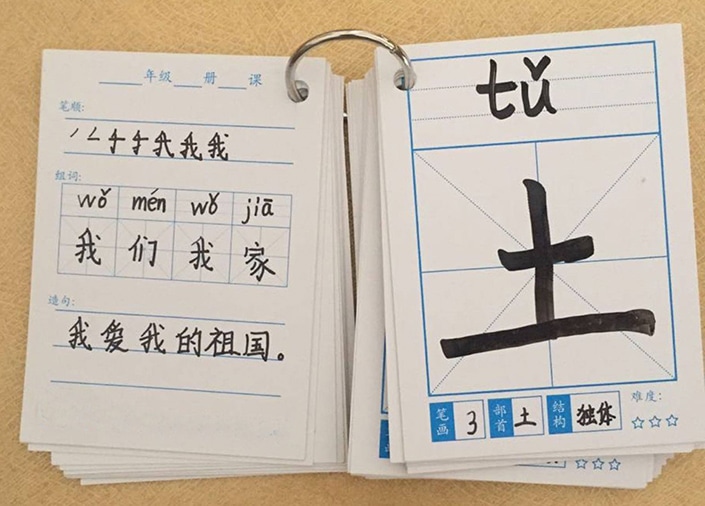 年级 册 课
笔顺:
我
组词:
wǒ mén wǒ jiā
我们我家
造句:
我爱我的祖国。
tǔ
土
笔画 3 部首 土 结构 独体 难度: